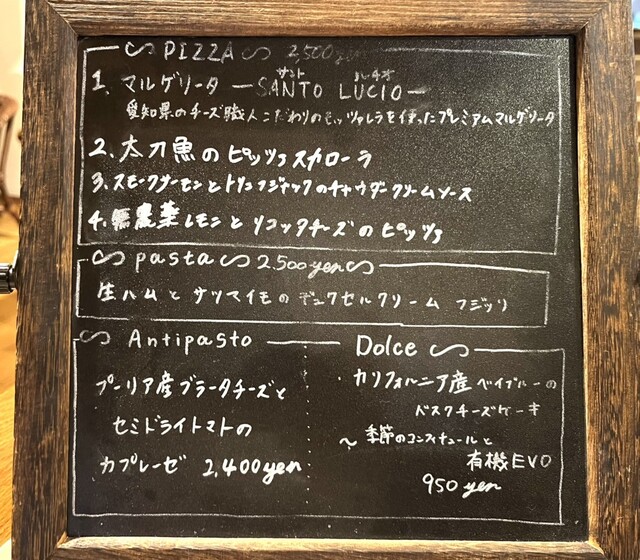 PIZZA 2,500yen
サント ルーチオ
1. マルゲリータ —SANTO LUCIO—
愛知県のチーズ職人こだわりのモッツァレラを使ったプレミアムマルゲリータ
2. 太刀魚のピッツァスカローラ
3. スモークサーモンとトリュフジャックのチャウダークリームソース
4. 無農薬レモンとリコッタチーズのピッツァ
pasta 2,500yen
生ハムとサツマイモのデュクセルクリーム フジッリ
Antipasto
プーリア産ブラータチーズと
セミドライトマトの
カプレーゼ 2,400yen
Dolce
カリフォルニア産ベイブルーの
バスクチーズケーキ
〜季節のコンフィチュールと
有機EVO
950yen